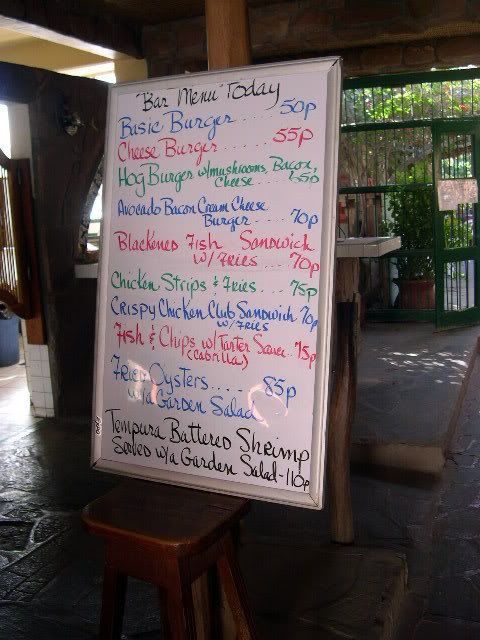 "Bar Menu" Today
Basic Burger .... 50p
Cheese Burger .... 55p
Hog Burger w/mushrooms, Bacon,
Cheese .... 65p
Avocado Bacon Cream Cheese
Burger .... 70p
Blackened Fish Sandwich
w/Fries .... 70p
Chicken Strips & Fries .... 75p
Crispy Chicken Club Sandwich 70p
w/Fries
Fish & Chips w/Tarter Sauce .. 75p
(Cabrilla)
Fried Oysters .... 85p
w/a Garden Salad
Tempura Battered Shrimp
Served w/a Garden Salad - 110p